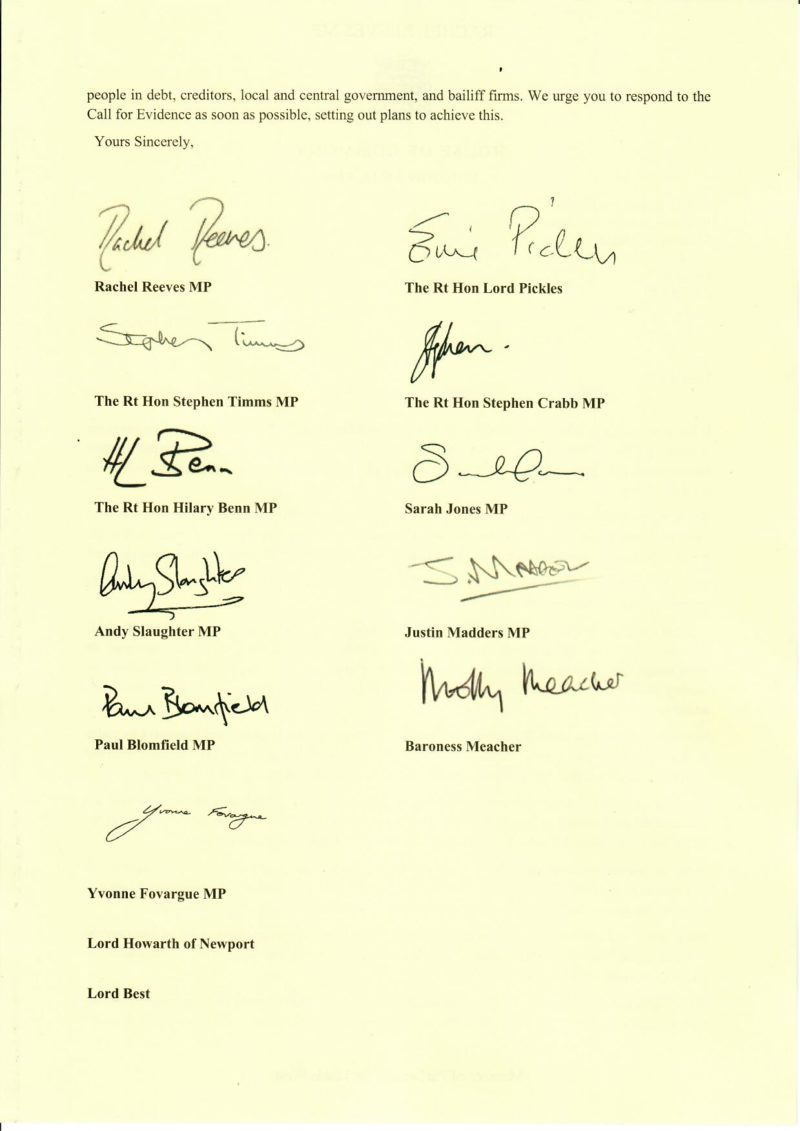 people in debt, creditors, local and central government, and bailiff firms. We urge you to respond to the
Call for Evidence as soon as possible, setting out plans to achieve this.
Yours Sincerely,
Rachel Reeves
Eric Pickles
Rachel Reeves MP
The Rt Hon Lord Pickles
Stephen Timms
Stephen
The Rt Hon Stephen Timms MP
The Rt Hon Stephen Crabb MP
H Benn
The Rt Hon Hilary Benn MP
Sarah Jones MP
Andy Slaughter
J. MADDERS
Andy Slaughter MP
Justin Madders MP
Paul Blomfield
Molly Meacher
Paul Blomfield MP
Baroness Meacher
Yvonne Fovargue
Yvonne Fovargue MP
Lord Howarth of Newport
Lord Best